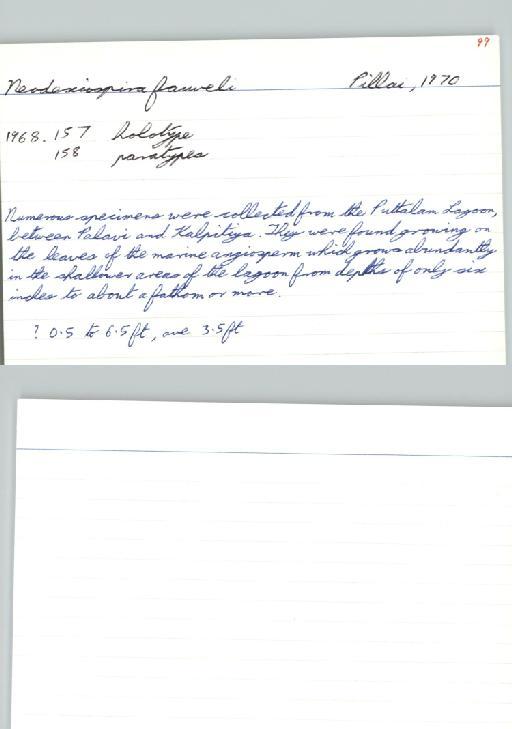 99
Neodexiospira fauveli Pillai, 1970
1968. 157 holotype
158 paratypes
Numerous specimens were collected from the Puttalam Lagoon,
between Palavi and Kalpitiya. They were found growing on
the leaves of the marine angiosperm which grows abundantly
in the shallower areas of the lagoon from depths of only six
inches to about a fathom or more.
? 0.5 to 6.5ft, ave 3.5ft